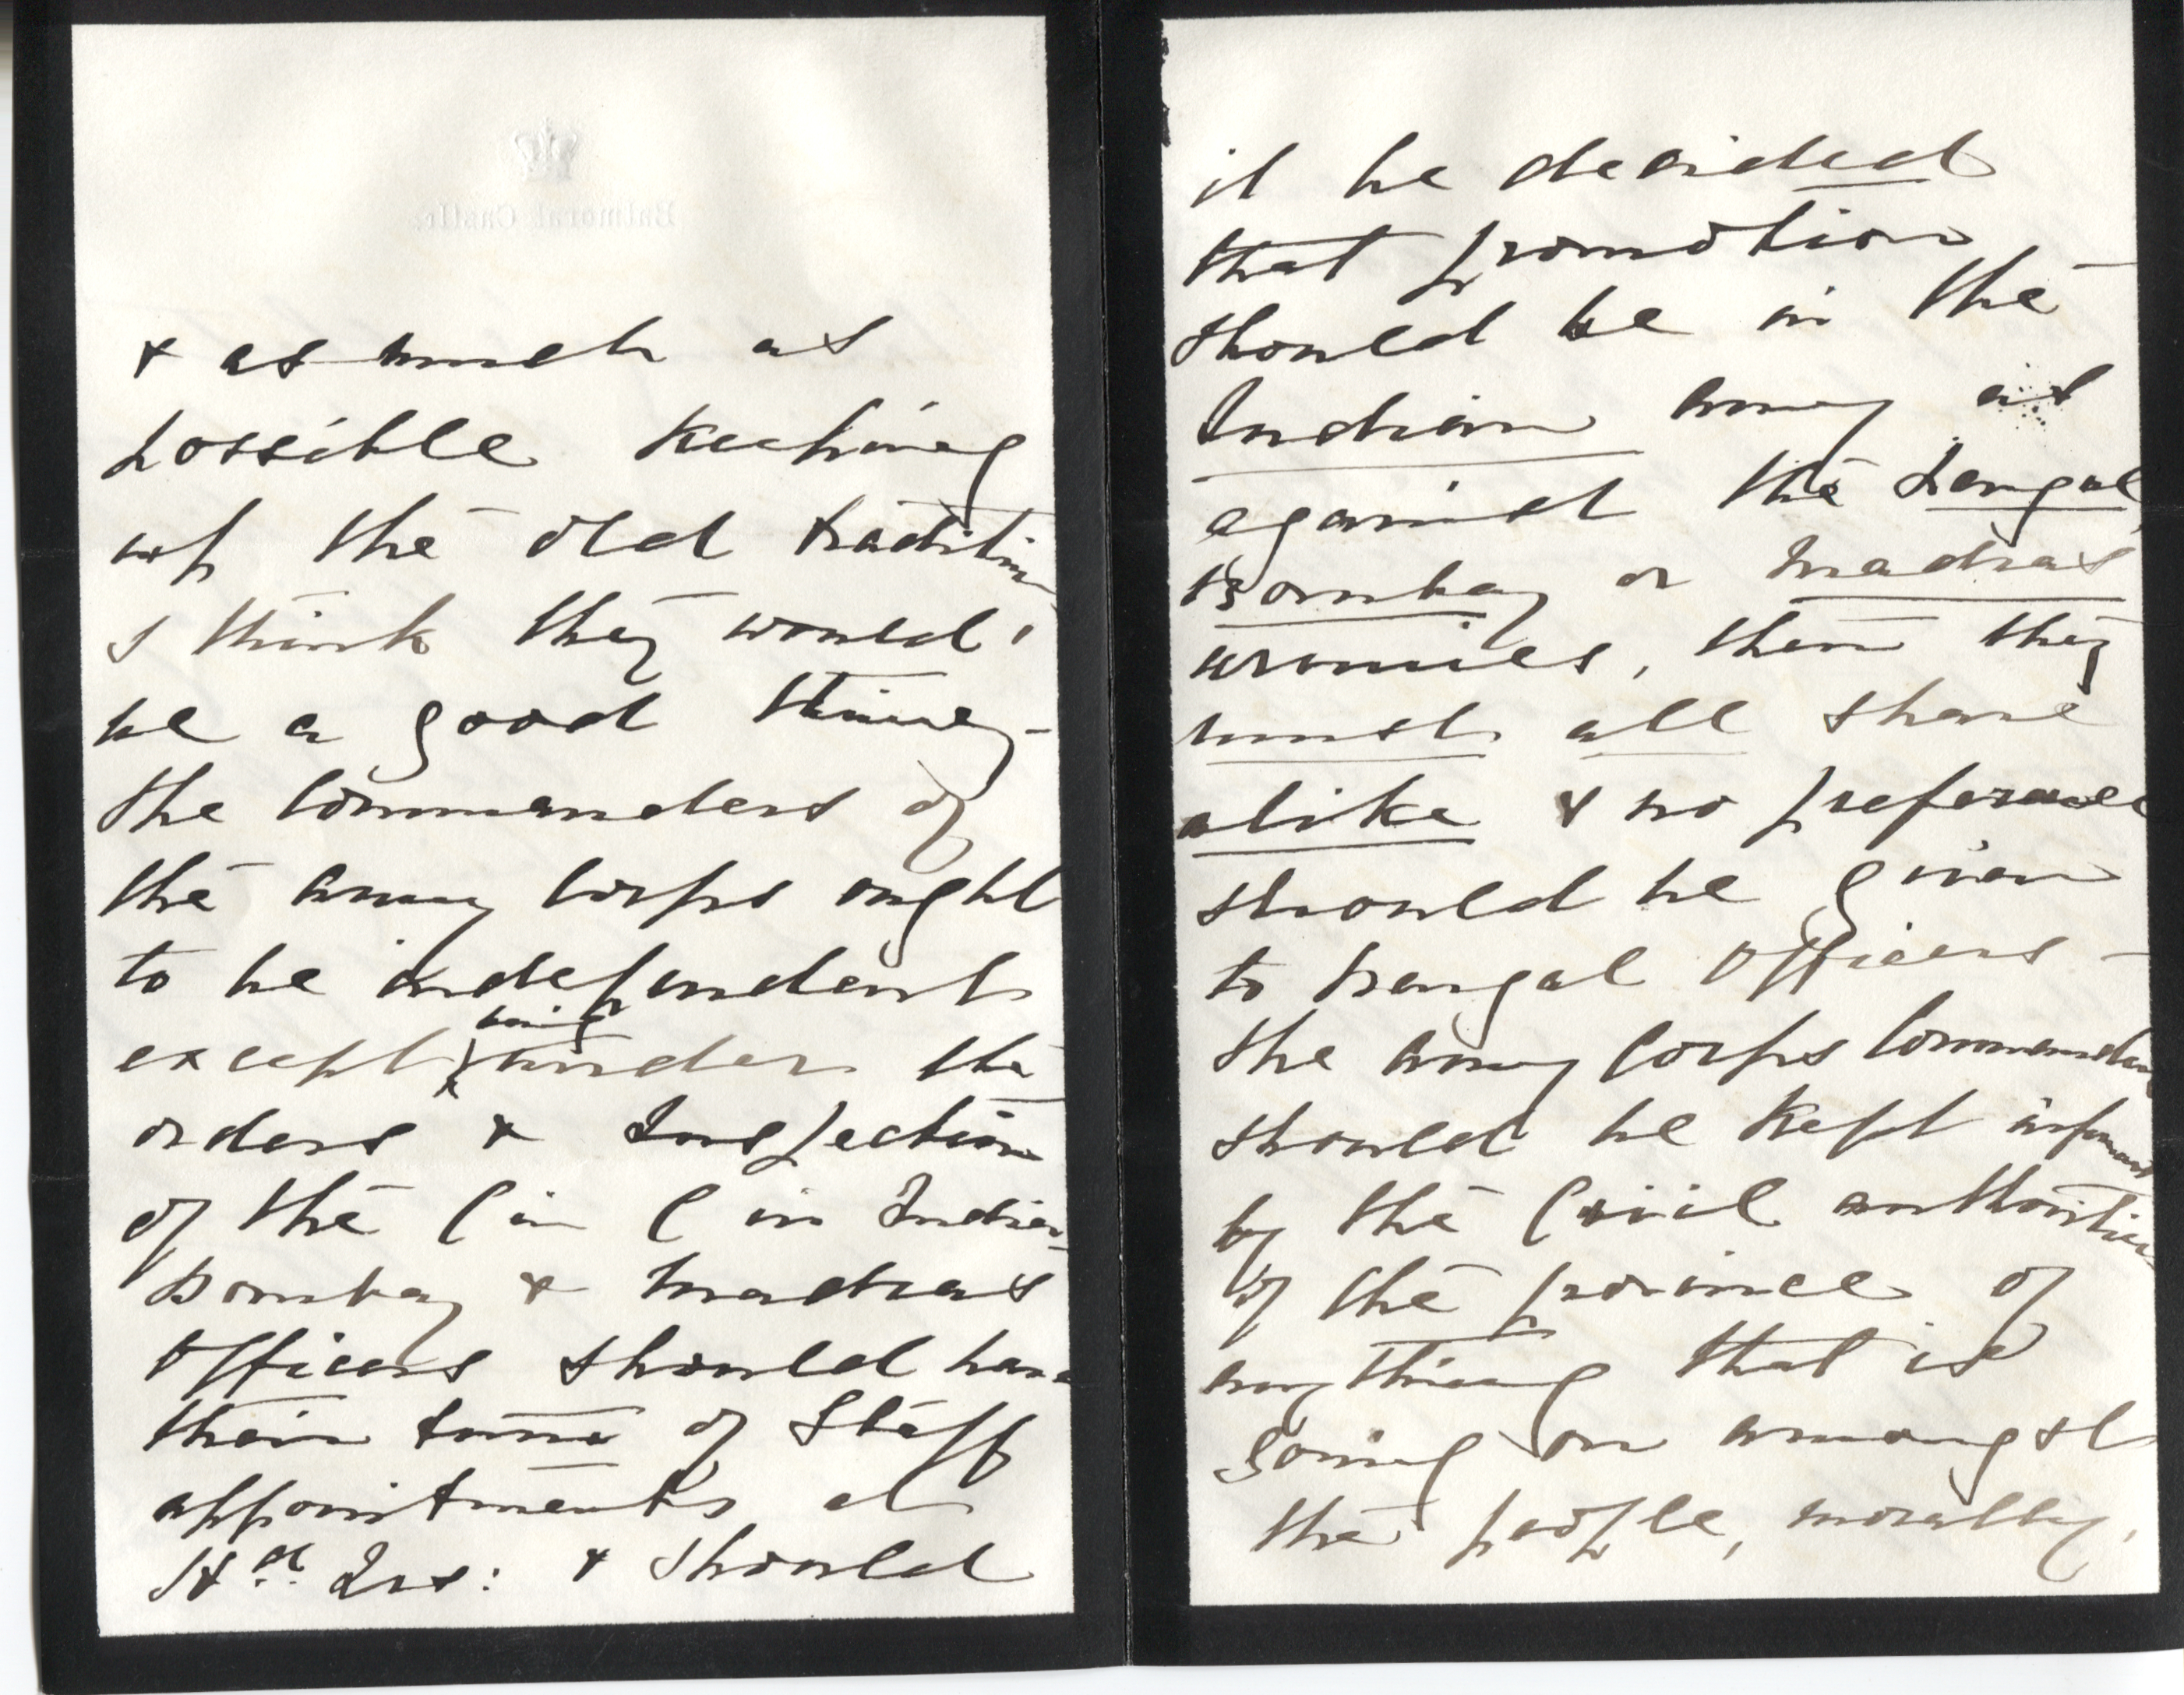 Balmoral Castle
& as much as
possible keeping
up the old tradition
I think they would
be a good thing -
the Commanders of
the Army Corps ought
to be independent
except being under the
orders & Inspection
of the C in C in India -
Bombay & Madras
Officers should have
their turn of Staff
appointments at
Hd. Qrs: & should
it be decided
that promotion
should be in the -
Indian Army as
against the Bengal,
Bombay or Madras
armies, then they
must all share
alike & no preference
should be given
to Bengal Officers -
the Army Corps Commanders
should be kept informed
by the Civil authorities
of the province of
any thing that is
going on amongst
the people, morally,